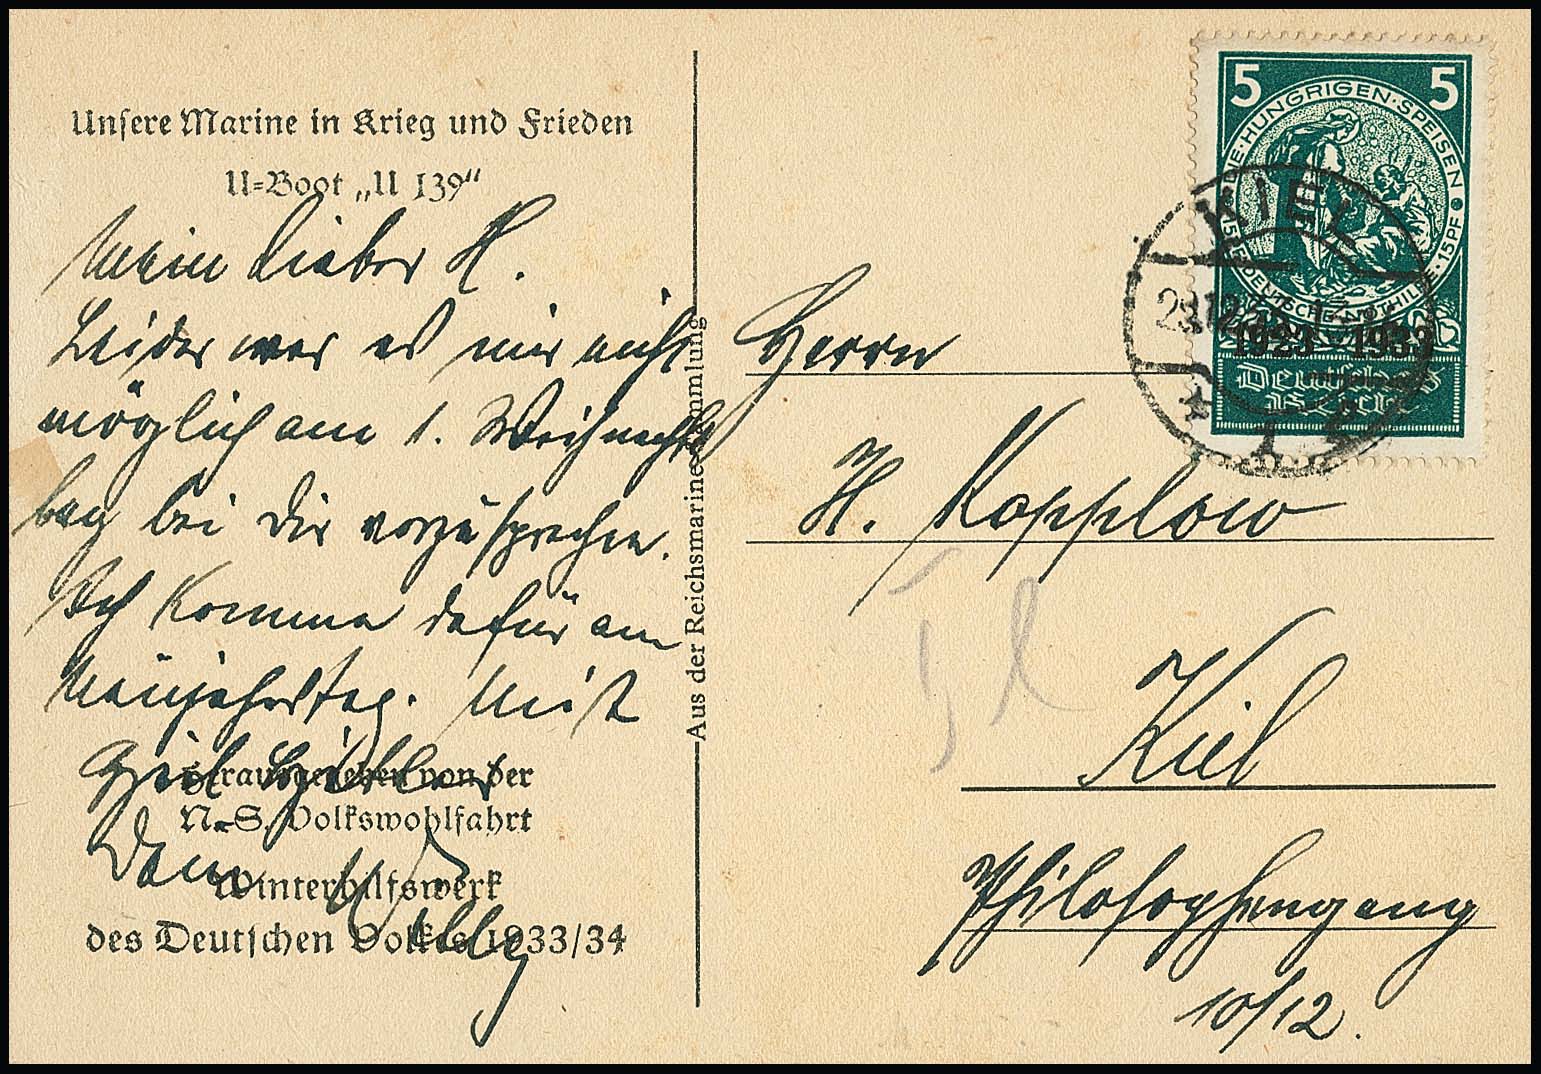 Unsere Marine in Krieg und Frieden
U=Boot „U 139“
Mein lieber H.
Leider war es mir nicht
möglich am 1. Weihnachts
tag bei Dir vorzusprechen.
Ich komme dafür am
Neujahrstag. Mit
Heil Hitler
Herausgegeben von der
N.=S. Volkswohlfahrt
Dein
Winterhilfswerk
Willy
des Deutschen Volkes 1933/34
Aus der Reichsmarine-Sammlung
5 5
DIE·HUNGRIGEN·SPEISEN
15 PF
1923 1933
Deutsches
Reich
KIEL
1
Herrn
H. Kopplow
Kiel
Philosophengang
10/12.